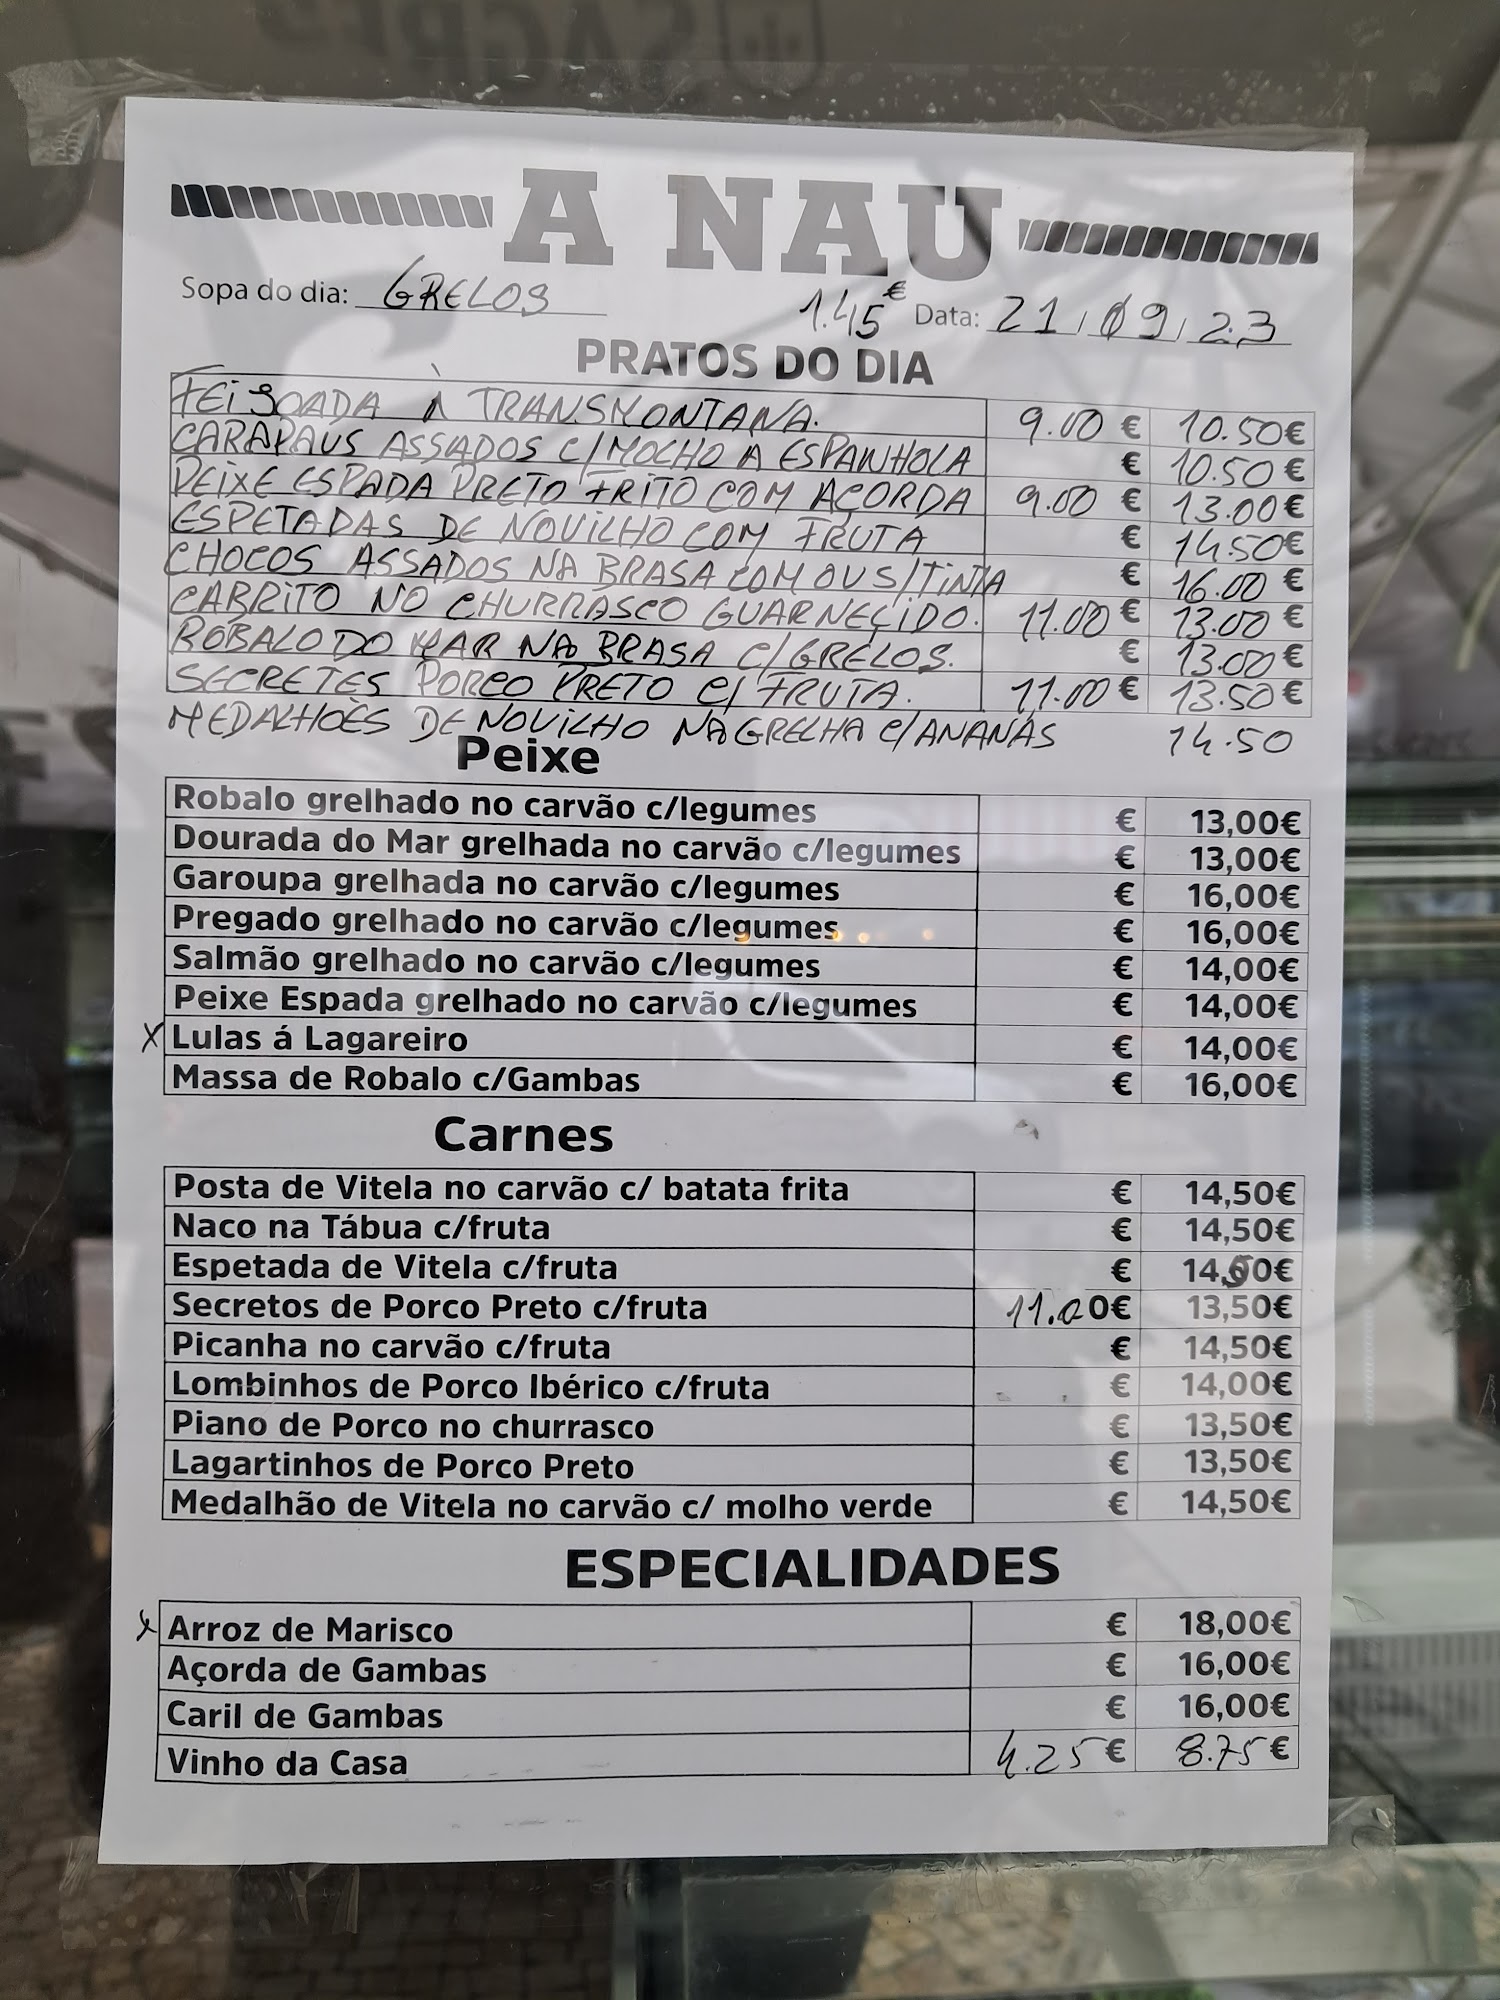 SAGRES
A NAU
Sopa do dia: GRELOS 1.45€ Data: 21/09/23
PRATOS DO DIA
FEIJOADA À TRANSMONTANA. 9.00 € 10.50€
CARAPAUS ASSADOS C/MOLHO A ESPANHOLA € 10.50€
PEIXE ESPADA PRETO FRITO COM AÇORDA 9.00 € 13.00€
ESPETADAS DE NOVILHO COM FRUTA € 14.50€
CHOCOS ASSADOS NA BRASA COM OUS/TINTA € 16.00 €
CABRITO NO CHURRASCO GUARNECIDO. 11.00€ 13.00€
ROBALO DO MAR NA BRASA C/GRELOS. € 13.00€
SECRETES PORCO PRETO C/ FRUTA. 11.00€ 13.50€
MEDALHÕES DE NOVILHO NA GRELHA C/ANANÁS 14.50
Peixe
Robalo grelhado no carvão c/legumes € 13,00€
Dourada do Mar grelhada no carvão c/legumes € 13,00€
Garoupa grelhada no carvão c/legumes € 16,00€
Pregado grelhado no carvão c/legumes € 16,00€
Salmão grelhado no carvão c/legumes € 14,00€
Peixe Espada grelhado no carvão c/legumes € 14,00€
X Lulas á Lagareiro € 14,00€
Massa de Robalo c/Gambas € 16,00€
Carnes
Posta de Vitela no carvão c/ batata frita € 14,50€
Naco na Tábua c/fruta € 14,50€
Espetada de Vitela c/fruta € 14,50€
Secretos de Porco Preto c/fruta 11.00€ 13,50€
Picanha no carvão c/fruta € 14,50€
Lombinhos de Porco Ibérico c/fruta € 14,00€
Piano de Porco no churrasco € 13,50€
Lagartinhos de Porco Preto € 13,50€
Medalhão de Vitela no carvão c/ molho verde € 14,50€
ESPECIALIDADES
X Arroz de Marisco € 18,00€
Açorda de Gambas € 16,00€
Caril de Gambas € 16,00€
Vinho da Casa 4.25€ 8.75€